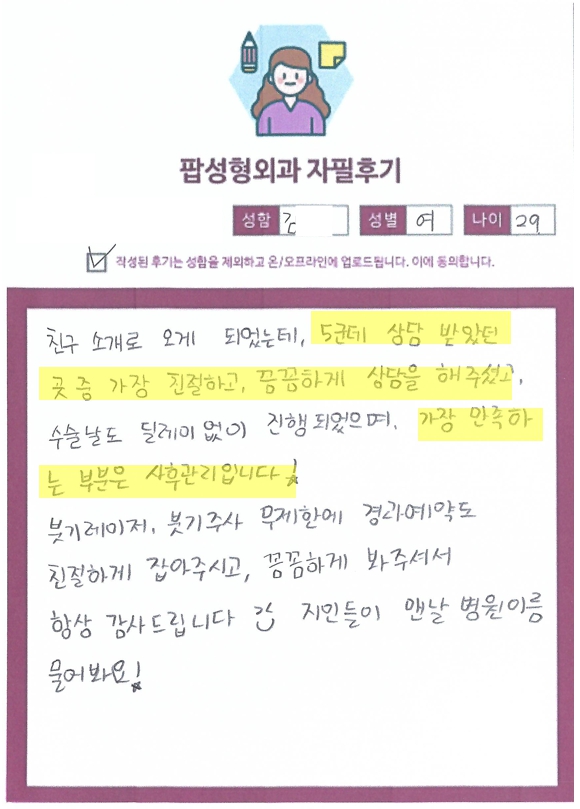 팝성형외과 자필후기
성함 조 성별 여 나이 29.
작성된 후기는 성함을 제외하고 온/오프라인에 업로드됩니다. 이에 동의합니다.
친구 소개로 오게 되었는데, 5군데 상담 받았던
곳 중 가장 친절하고, 꼼꼼하게 상담을 해주셨고,
수술날도 딜레이없이 진행되었으며, 가장 만족하
는 부분은 사후관리입니다!
붓기레이저, 붓기주사 무제한에 경과예약도
친절하게 잡아주시고, 꼼꼼하게 봐주셔서
항상 감사드립니다 지인들이 맨날 병원이름
물어봐요!